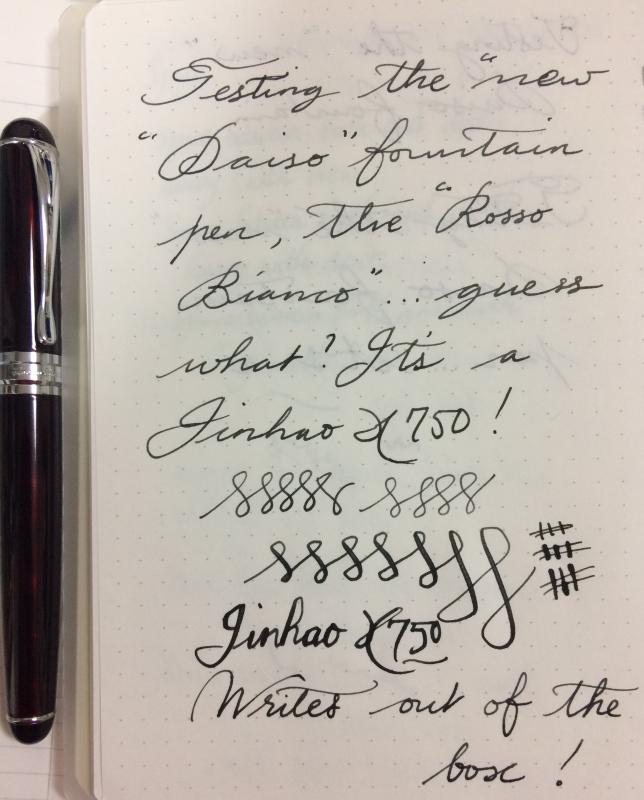 Testing the "new
"Daiso" fountain
pen, the "Rosso
Bianco"... guess
what? It's a
Jinhao X750!
Jinhao X750
Writes out of the
box!